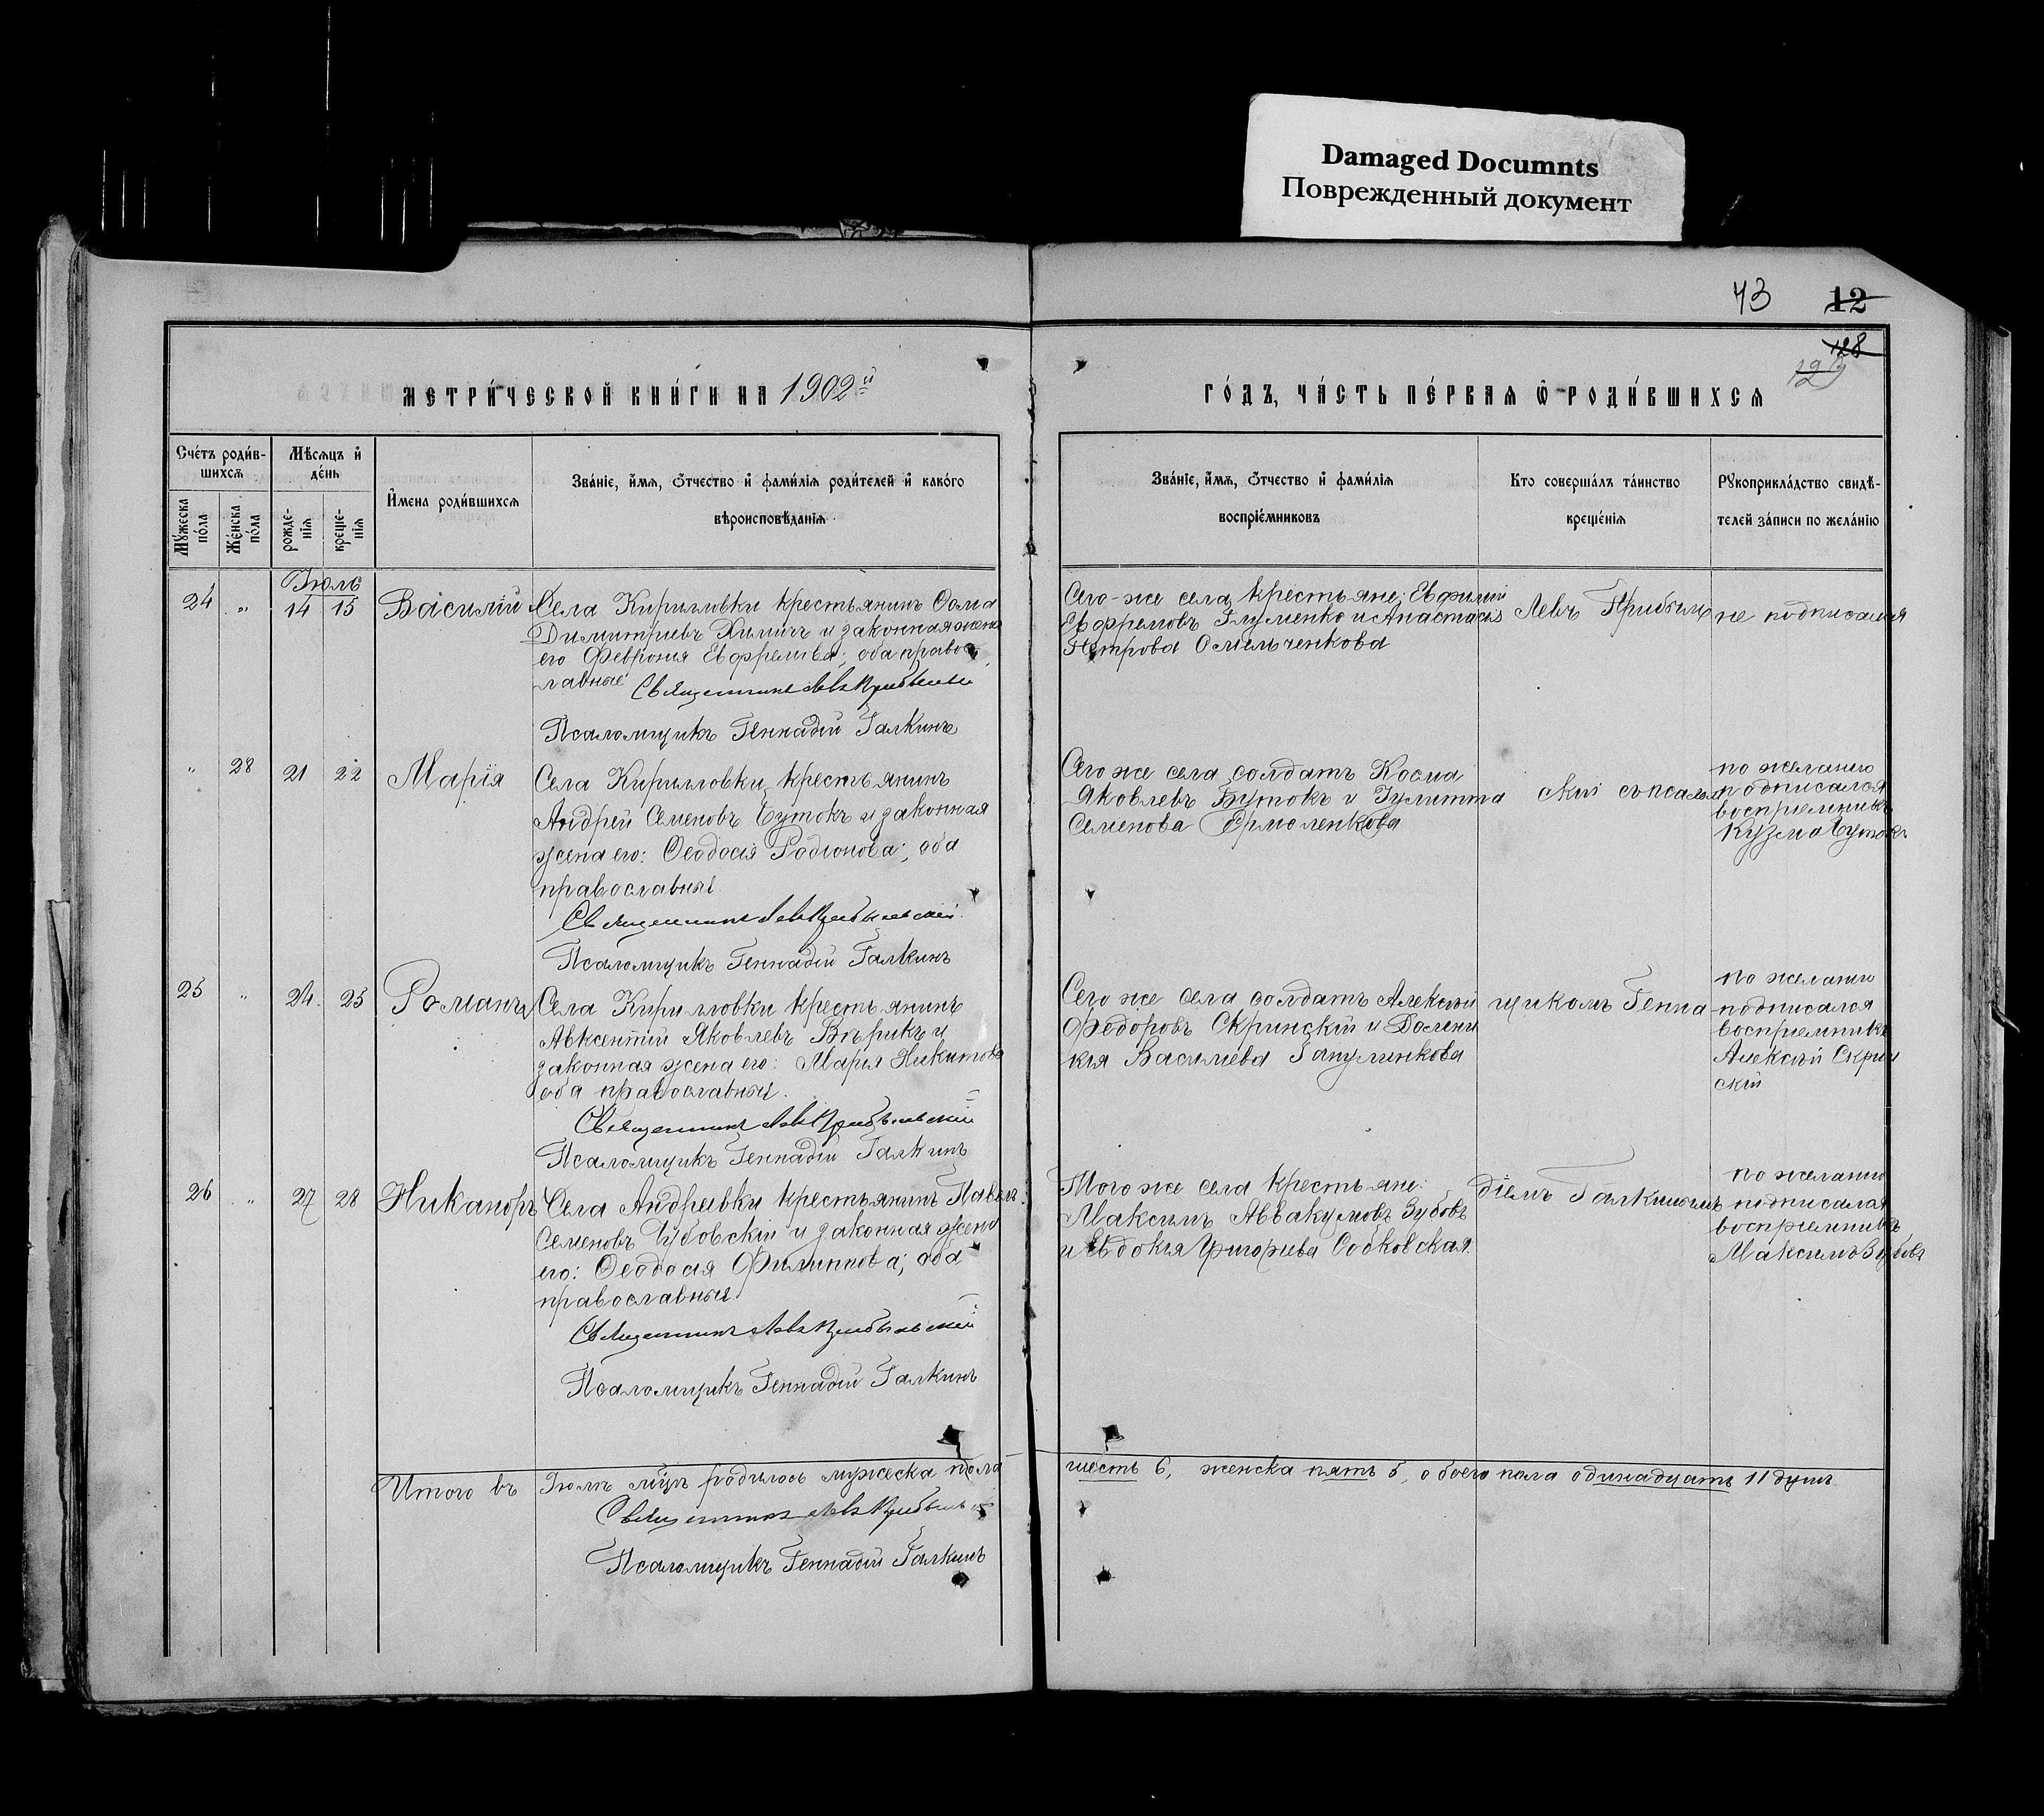 Damaged Documnts
Поврежденный документ
43 12
128
129
МЕТРИ́ЧЕСКОЙ КНИ́ГИ НА 1902й
ГО́ДЪ, ЧА́СТЬ ПЕ́РВАЯ Ѿ РОДИ́ВШИХСЯ
Сче́тъ роди́в-
шихся
Мѣсяцъ и
де́нь
Мꙋ́жеска по́ла
Же́нска по́ла
рожде-
нія
креще-
нія
Имена роди́вшихся
Зва́ніе, и́мя, ѻ́тчество и фами́лія роди́телей и како́го
вѣроисповѣ́данія
Зва́ніе, и́мя, ѻ́тчество и фами́лія
воспріе́мниковъ
Кто соверша́лъ та́инство
креще́нія
Рꙋкоприкла́дство свидѣ́-
телей за́писи по жела́нію
Іюль
24 „ 14 15 Василій
Села Кирилловки крестьянинъ Ѳома
Димитріевъ Химичъ и законная жена
его Феврония Евфремова; оба правос
лавные
Священникъ Левъ Прибыльскій
Псаломщикъ Геннадій Галкинъ
Сего-же села крестьяне: Евфимій
Евфремовъ Глуменко и Анастасія
Петрова Омельченкова
Левъ Прибыль
не подписался
„ 28 21 22 Марія
Села Кирилловки крестьянинъ
Андрей Семеновъ Бутокъ и законная
жена его: Ѳеодосія Родіонова; оба
православные
Священникъ Левъ Прибыльскій
Псаломщикъ Геннадій Галкинъ
Сего же села солдатъ Косма
Яковлевъ Бутокъ и Іулитта
Семенова Ермоленкова
скій съ псалом
по желанію
подписался
воспріемникъ
Кузма Бутокъ
25 „ 24 25 Романъ
Села Кирилловки крестьянинъ
Авксентій Яковлевъ Вѣрикъ и
законная жена его: Марія Никитова
оба православные.
Священникъ Левъ Прибыльскій
Псаломщикъ Геннадій Галкинъ
Сего же села солдатъ Алексій
Федоровъ Скринскій и Домни
кія Василіева
щикомъ Генна
по желанію
подписался
воспріемникъ
Алексѣй Скрин
скій
26 „ 27 28 Никаноръ
Села Андреевки крестьянинъ Павелъ
Семеновъ Чубовскій и законная жена
его: Ѳеодосія Филиппова; оба
православные.
Священникъ Левъ Прибыльскій
Псаломщикъ Геннадій Галкинъ
Того же села крестьяне:
Максимъ Аввакумовъ Зубовъ
и Евдокія Григорьева Собковская.
діемъ Галкинымъ
по желанію
подписался
воспріемникъ
Максимъ Зубовъ
Итого въ Іюлѣ мцѣ родилось мужеска пола шесть 6, женска пять 5, обоего пола одинадцать 11 душъ.
Священникъ Левъ Прибыльскій
Псаломщикъ Геннадій Галкинъ